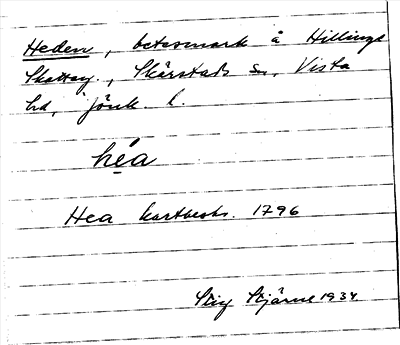 Heden, betesmark å Hillinge
Skattag., Skärstads sn, Vista
hd, Jönk. l.
hẹ́a
Hea kartbeskr. 1796
Stig Stjärne 1934